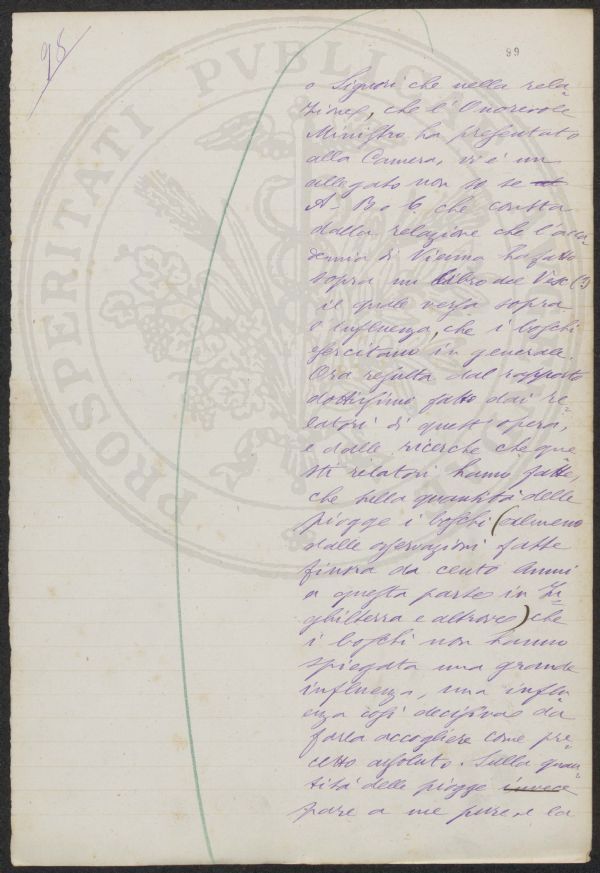 98
89
PROSPERITATI PVBLICAE
o Signori che nella rela=
zione, che l'Onorevole
Ministro ha presentato
alla Camera, vi è un
allegato non so se
A B o C. che consta
dalla relazione che l'acca
demia di Vienna ha fatto
sopra un libro del (?)
il quale versa sopra
l'influenza, che i boschi
esercitano in generale.
Ora risulta dal rapporto
dottissimo fatto dai re=
latori di quest'opera,
e dalle ricerche che que
sti relatori hanno fatte,
che sulla quantità delle
piogge i boschi (almeno
dalle osservazioni fatte
finora da cento anni
a questa parte in In=
ghilterra e altrove) che
i boschi non hanno
spiegata una grande
influenza, una influ
enza così decisiva da
farla accogliere come pre=
cetto assoluto. Sulla quan=
tità delle piogge invece
pare a me pure, e la